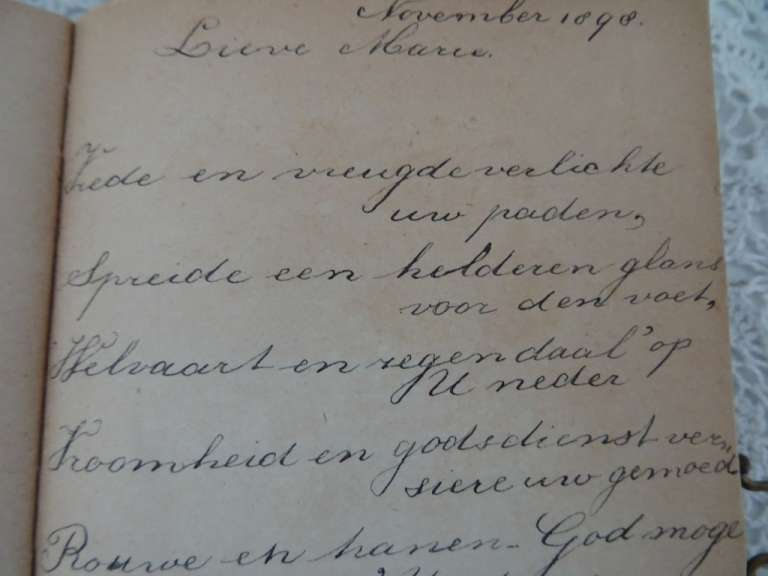 November 1898.
Lieve Marie.
Vrede en vreugde verlichte
uw paden,
Spreide een helderen glans
voor den voet,
Welvaart en zegen daal' op
U neder
Vroomheid en godsdienst ver,,
siere uw gemoed
Rouwe en God moge